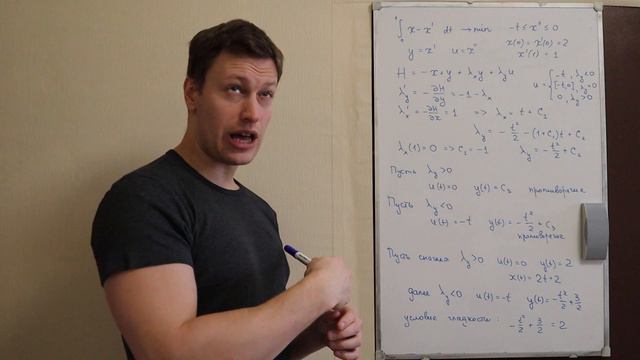 ∫ x - x' dt → min   -t ≤ x'' ≤ 0
y = x'   u = x''   x(0) = x'(0) = 2
x'(1) = 1
H = -x + y + λₓy + λ_y u   u = { -t, λ_y<0
[-t,0], λ_y=0
0, λ_y>0
λ'_y = -∂H/∂y = -1 - λₓ
λ'ₓ = -∂H/∂x = 1   ⇒ λₓ = t + C₁
λ_y = -t²/2 - (1+C₁)t + C₂
λₓ(1) = 0 ⇒ C₁ = -1   λ_y = -t²/2 + C₂
Пусть λ_y > 0
u(t)=0   y(t) = C₃   противоречие
Пусть λ_y < 0
u(t) = -t   y(t) = -t²/2 + C₃
противоречие
Пусть сначала λ_y > 0   u(t) = 0   y(t) = 2
x(t) = 2t+2
далее λ_y < 0   u(t) = -t   y(t) = -t²/2 + 3/2
условие гладкости: -t²/2 + 3/2 = 2